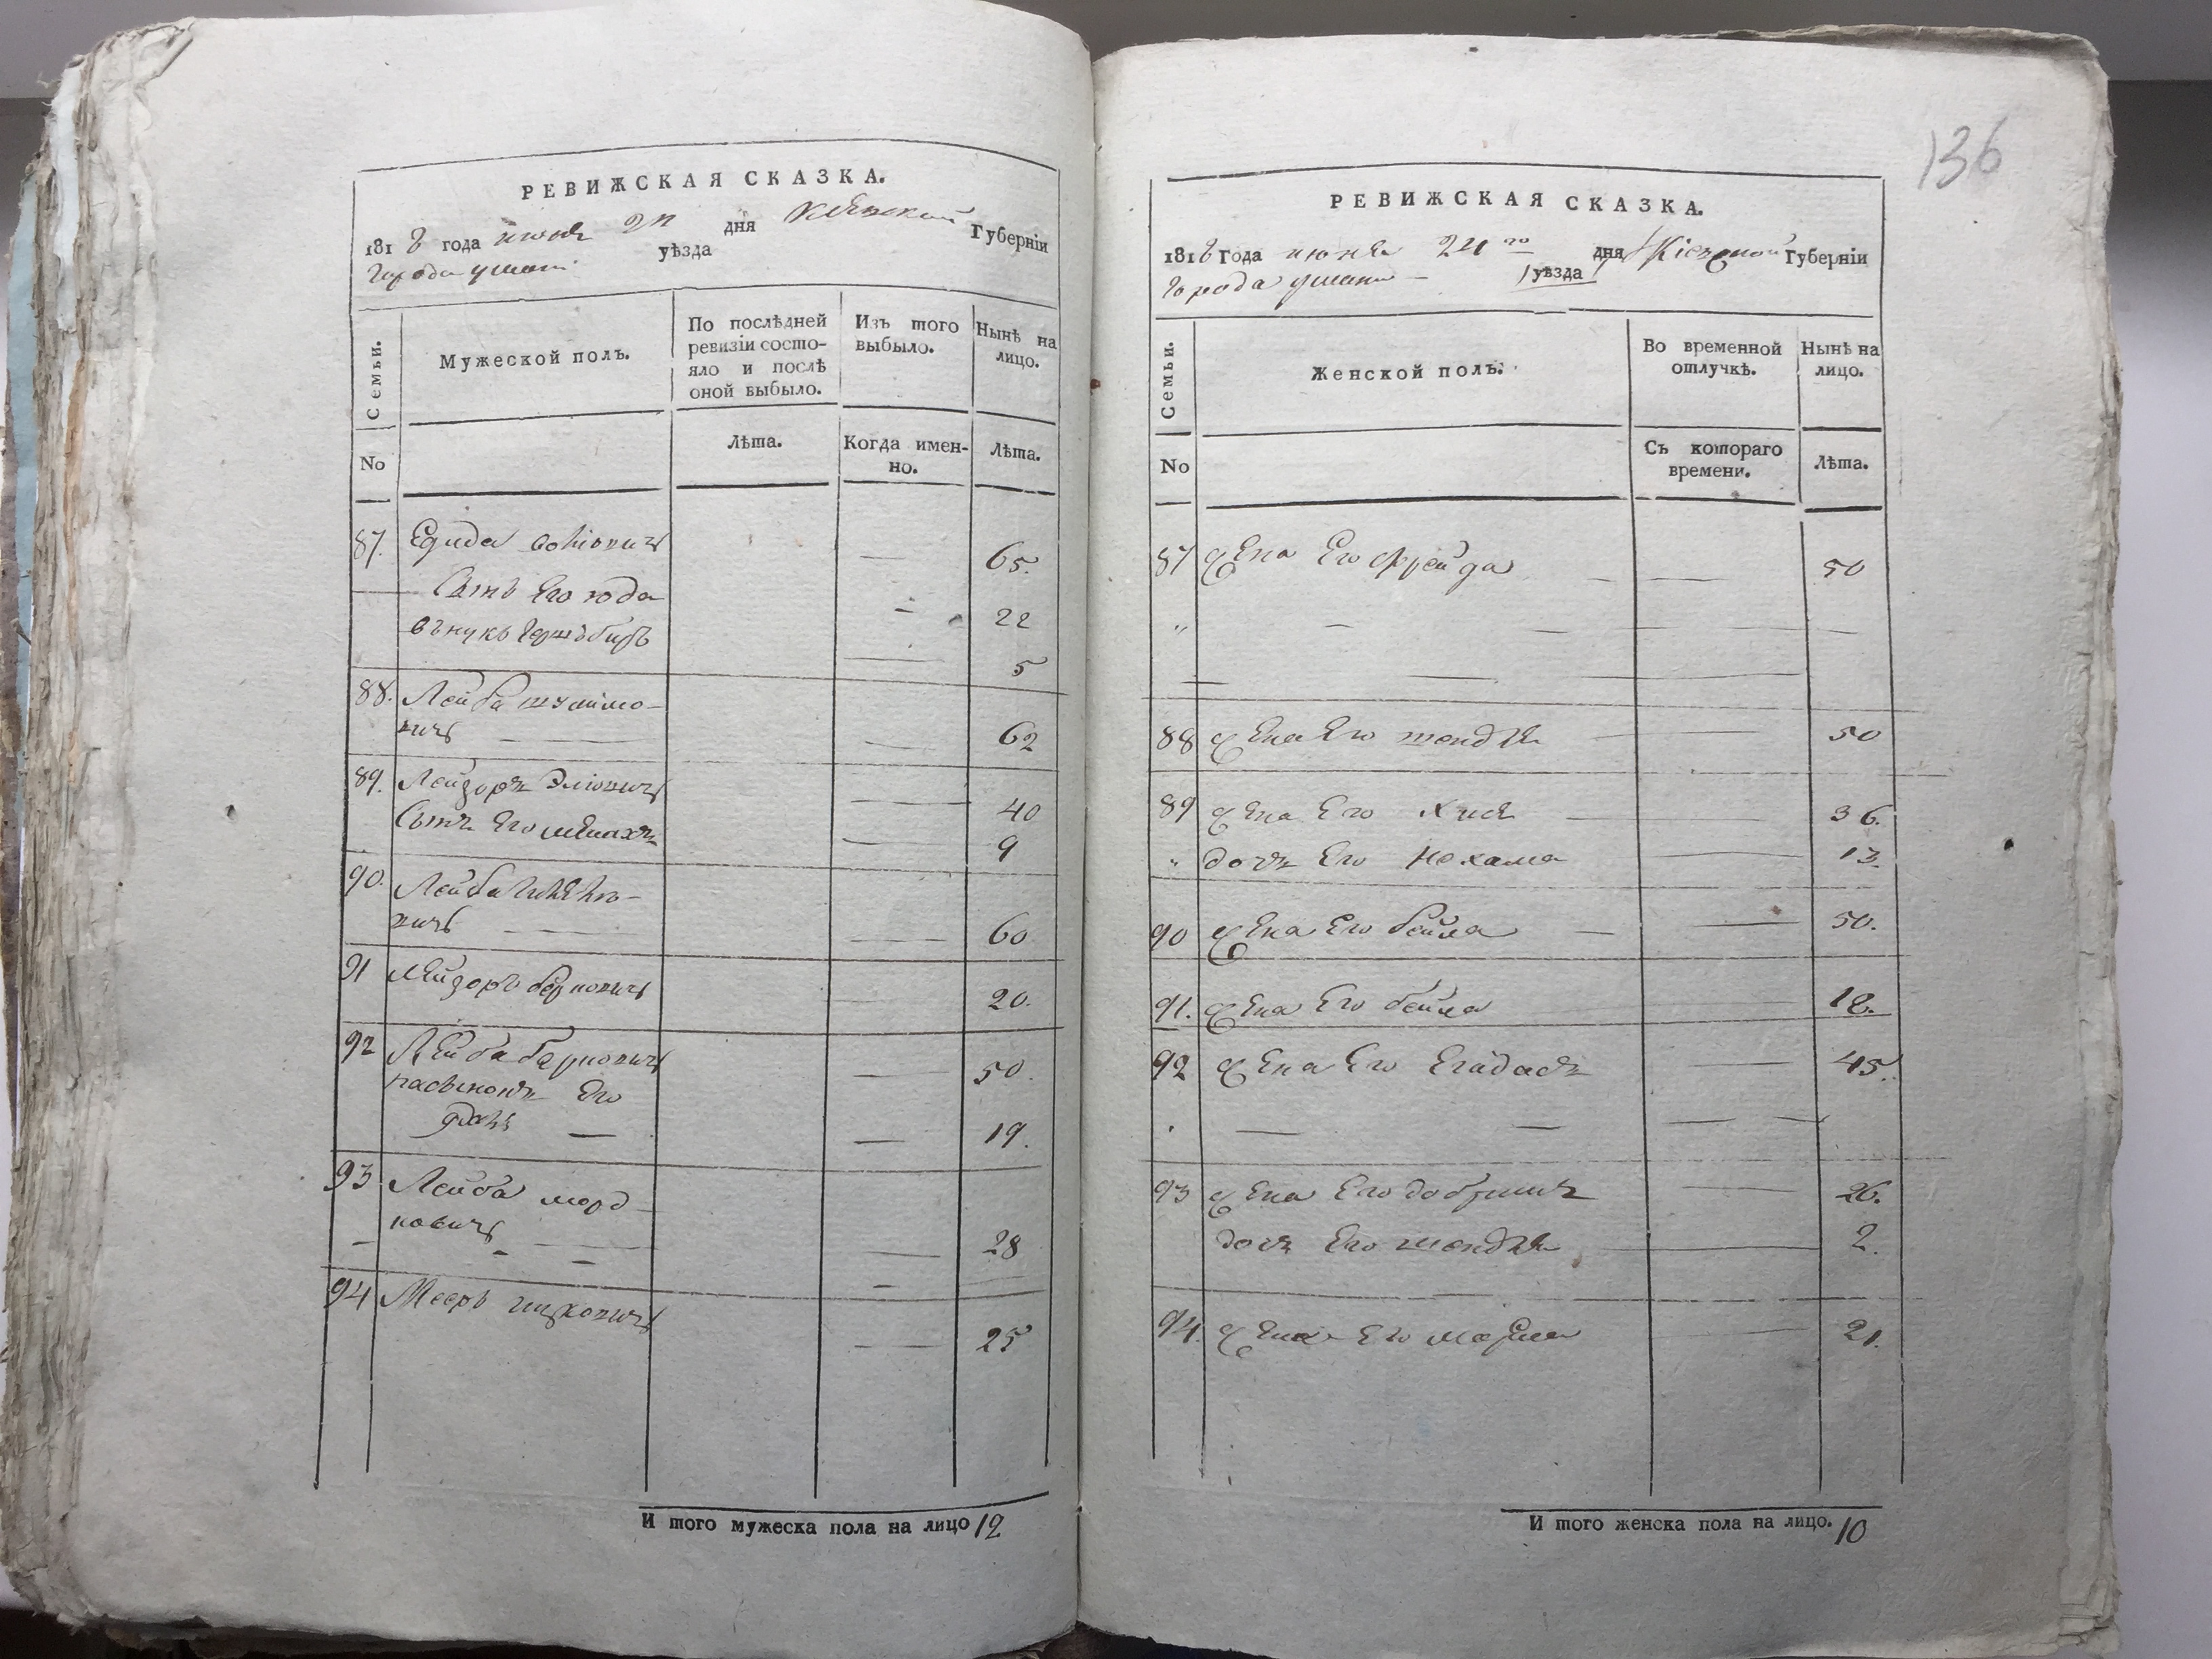 136
РЕВИЖСКАЯ СКАЗКА.
1818 года июня дня Киевской Губерніи
города умани уѣзда
Семьи.
Мужеской полъ.
По послѣдней ревизіи состо-
яло и послѣ
оной выбыло.
Изъ того
выбыло.
Нынѣ на
лицо.
No
Лѣта.
Когда имен-
но.
Лѣта.
87.
65.
Сынъ Его юда 22
внукъ 5
88. Лейба шулимо-
вичъ 62
89. Лейзоръ Эліовичъ 40
Сынъ Его 9
90. Лейба
вичъ 60
91 Лейзоръ берковичъ 20.
92 Лейба берковичъ 50.
пасынокъ Его
19.
93 Лейба морд-
ковичъ 28
94 Мееръ ицковичъ 25
И того мужеска пола на лицо 12
РЕВИЖСКАЯ СКАЗКА.
1818 Года июня 24го дня Кіевской Губерніи
города умани уѣзда
Семьи.
Женской полъ.
Во временной
отлучкѣ.
Нынѣ на
лицо.
No
Съ котораго
времени.
Лѣта.
87 жена Его фрейда 50
88 жена Его шендля 50
89 жена Его Хися 36.
дочь Его Нехама 13.
90 жена Его бейла 50.
91. жена Его бейла 18.
92 жена Его 45.
93 жена Его добрышь 26.
дочь Его шендля 2.
94. жена Его 21.
И того женска пола на лицо. 10